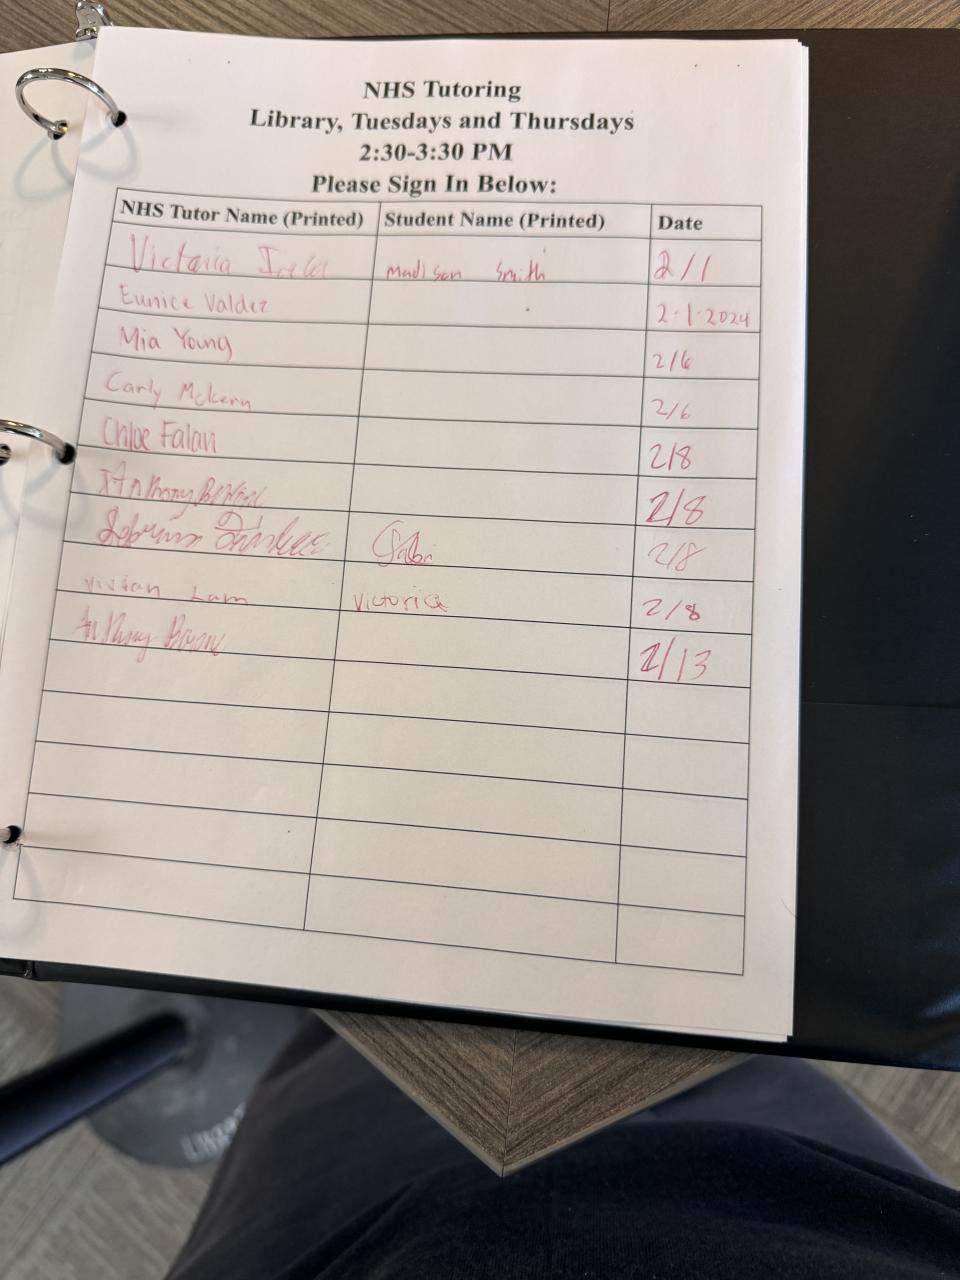 NHS Tutoring
Library, Tuesdays and Thursdays
2:30-3:30 PM
Please Sign In Below:
NHS Tutor Name (Printed) Student Name (Printed) Date
Victoria Madison Smith 2/1
Eunice Valdez 2-1-2024
Mia Young 2/6
Carly McKern 2/6
Chloe Falan 2/8
Anthony 2/8
2/8
Vivian Lam Victoria 2/8
Anthony 2/13